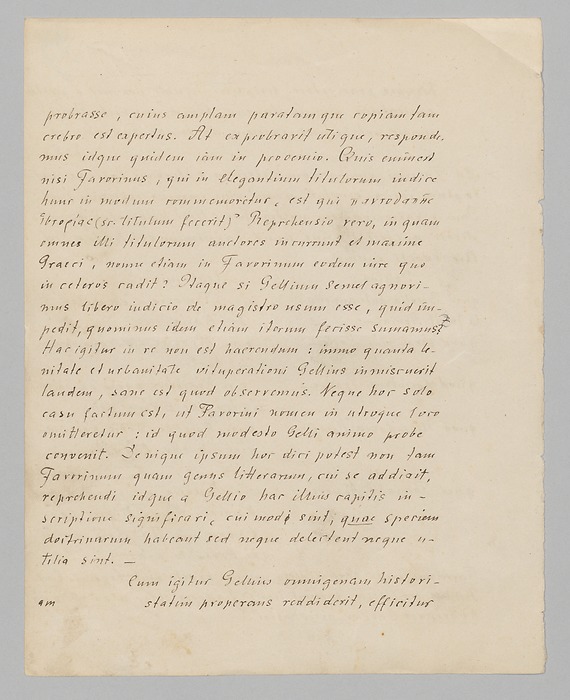 probrasse, cuius amplam paratamque copiam tam
crebro est expertus. At exprobravit utique, responde-
mus idque quidem iam in prooemio. Quis enim est
nisi Favorinus, qui in elegantium titulorum indice
hunc in modum commemoretur, est qui
(sc. titulum fecerit)? Reprehensio vero, in quam
omnes illi titulorum auctores incurrunt et maxime
Graeci, nonne etiam in Favorinum eodem iure quo
in ceteros cadit? Itaque si Gellium semel agnovi-
mus libero iudicio de magistro usum esse, quid im-
pedit, quominus idem etiam iterum fecisse sumamus?
Hac igitur in re non est haerendum: immo quanta le-
nitate et urbanitate vituperationi Gellius inmiscuerit
laudem, sane est quod observemus. Neque hoc solo
casu factum est, ut Favorini nomen in utroque loco
omitteretur: id quod modesto Gelli animo probe
convenit. Denique ipsum hoc dici potest non tam
Favorinum quam genus litterarum, cui se addixit,
reprehendi idque a Gellio hac illius capitis in-
scriptione significari, cui modi sint, quae speciem
doctrinarum habeant sed neque delectent neque u-
tilia sint. —
Cum igitur Gellius omnigenam histori-
am statim properans reddiderit, efficitur